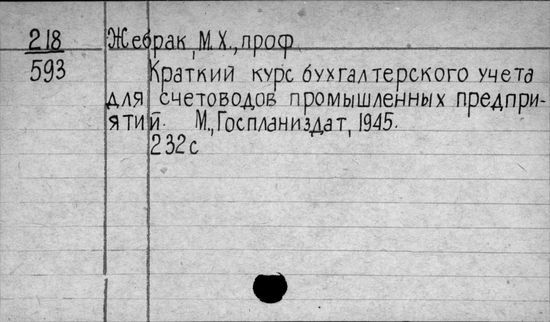 218 Жебрак, М.Х., проф.
593 Краткий курс бухгалтерского учета
для счетоводов промышленных предпри-
ятий. М., Госпланиздат, 1945.
232с